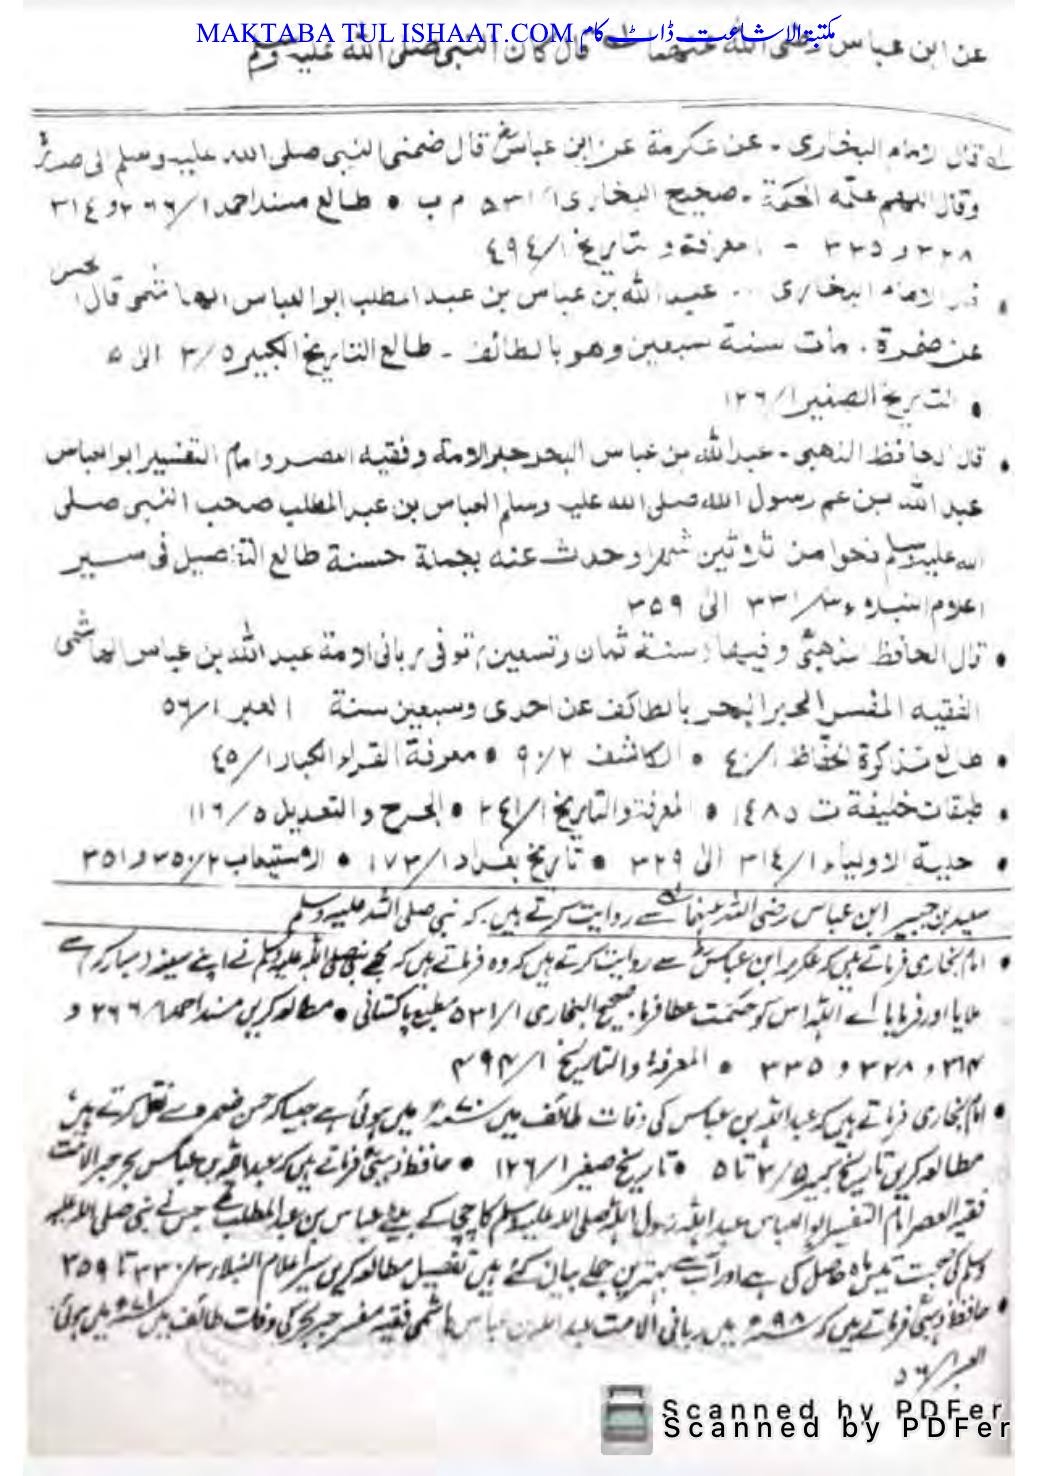 MAKTABA TUL ISHAAT.COM مکتبۃ الاشاعت ڈاٹ کام
عن ابن عباس رضی الله عنهما قال کان النبی صلی الله علیه وسلم
قال الامام البخاری - عن عکرمة عن ابن عباس قال ضمنی النبی صلی الله علیه وسلم الی صدره
وقال اللهم علمه الحکمة - صحیح البخاری ۱/ ۵۳۱ م ب • طالع مسند احمد ۱/ ۲٦٦ و ۳۱٤
۳۲۸ و ۳۳۵ - معرفة و تاریخ ۱/ ٤۹٤
• الامام البخاری ... عبد الله بن عباس بن عبد المطلب ابو العباس الهاشمی قال الحسن
عن ضمرة . مات سنة سبعین وهو بالطائف - طالع التاریخ الکبیر ۵/ ۳ الی ۵
• التاریخ الصغیر ۱/ ۱۲٦
• قال الحافظ الذهبی - عبد الله بن عباس البحر حبر الامة و فقیه العصر و امام التفسیر ابو العباس
عبد الله بن عم رسول الله صلی الله علیه وسلم العباس بن عبد المطلب صحب النبی صلی
الله علیه وسلم نحوا من ثلاثین شهرا وحدث عنه بجملة حسنة طالع التفاصیل فی سیر
اعلام النبلاء ۳/ ۳۳۱ الی ۳۵۹
• قال الحافظ الذهبی و فیها توفی ربانی الامة عبد الله بن عباس الهاشمی
الفقیه المفسر الحبر البحر بالطائف عن احدی وسبعین سنة العبر ۱/ ۵٦
• طالع تذکرة الحفاظ ۱/ ٤۰ • الکاشف ۲/ ۹۰ • معرفة القراء الکبار ۱/ ٤۵
• طبقات خلیفة ت ۱٤۸۵ • المعرفة والتاریخ ۱/ ۲٤۱ • الجرح والتعدیل ۵/ ۱۱٦
• حلیة الاولیاء ۱/ ۳۱٤ الی ۳۲۹ • تاریخ بغداد ۱/ ۱۷۳ • الاستیعاب ۲/ ۳۵۰ و ۳۵۱
سعید بن جبیر ابن عباس رضی اللہ عنہما سے روایت کرتے ہیں کہ نبی صلی اللہ علیہ وسلم
• امام بخاری فرماتے ہیں کہ عکرمہ ابن عباس سے روایت کرتے ہیں کہ وہ فرماتے ہیں کہ مجھے نبی صلی اللہ علیہ وسلم نے اپنے سینہ مبارک سے
ملایا اور فرمایا اے اللہ اس کو حکمت عطا فرما۔ صحیح البخاری ۱/ ۵۳۱ طبع پاکستانی • مطالعہ کریں مسند احمد ۱/ ۲۶۶ و
۳۱۴ و ۳۲۸ و ۳۳۵ • المعرفۃ والتاریخ ۱/ ۴۹۴
• امام بخاری فرماتے ہیں کہ عبد اللہ بن عباس کی وفات طائف میں ۷۰ھ میں ہوئی ہے جیسا کہ حسن ضمرہ سے نقل کرتے ہیں
مطالعہ کریں تاریخ کبیر ۵/ ۳ تا ۵ • تاریخ صغیر ۱/ ۱۲۶ • حافظ ذہبی فرماتے ہیں کہ عبد اللہ بن عباس بحر حبر الامت
فقیہ العصر امام التفسیر ابو العباس عبد اللہ رسول اللہ صلی اللہ علیہ وسلم کا چچا کے بیٹے عباس بن عبد المطلب جس نے نبی صلی اللہ علیہ
وسلم کی صحبت تیس ماہ حاصل کی ہے اور آپ سے بہترین جملے بیان کئے ہیں تفصیل مطالعہ کریں سیر اعلام النبلاء ۳/ ۳۳۰ تا ۳۵۹
• حافظ ذہبی فرماتے ہیں کہ ۹۸ھ میں ربانی الامت عبد اللہ بن عباس ہاشمی فقیہ مفسر حبر بحر کی وفات طائف میں ہوئی
العبر ۱/ ۵۶
Scanned by PDFer
Scanned by PDFer